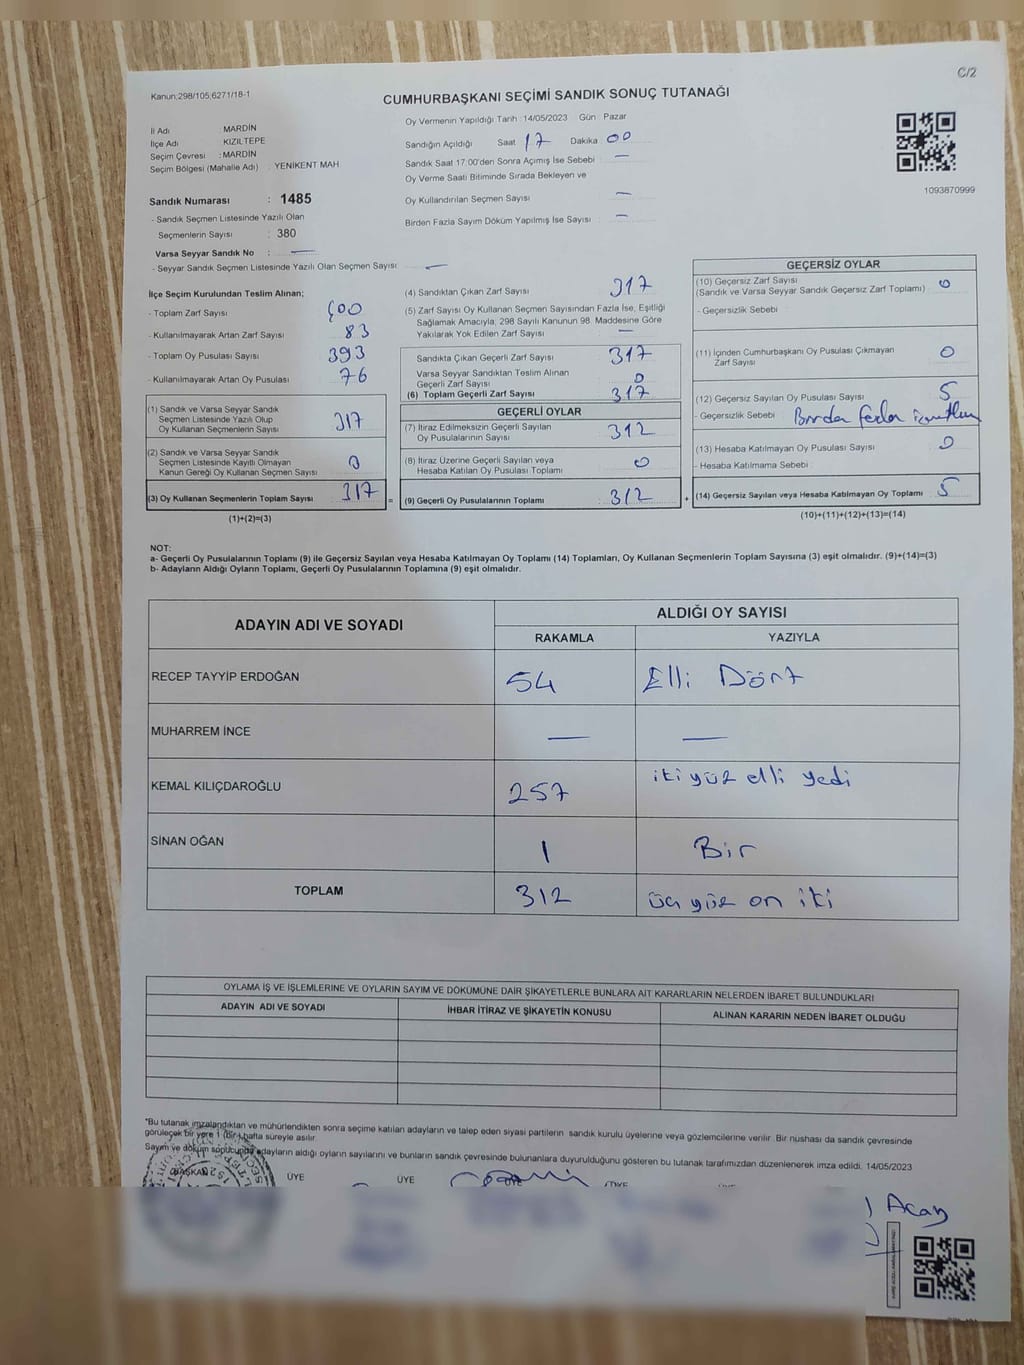 C/2
Kanun:298/105;6271/18-1
CUMHURBAŞKANI SEÇİMİ SANDIK SONUÇ TUTANAĞI
İl Adı MARDİN
İlçe Adı KIZILTEPE
Seçim Çevresi : MARDİN
Seçim Bölgesi (Mahalle Adı) : YENİKENT MAH
Sandık Numarası : 1485
- Sandık Seçmen Listesinde Yazılı Olan
Seçmenlerin Sayısı : 380
Varsa Seyyar Sandık No : —
- Seyyar Sandık Seçmen Listesinde Yazılı Olan Seçmen Sayısı : —
Oy Vermenin Yapıldığı Tarih : 14/05/2023 Gün Pazar
Sandığın Açıldığı Saat 17 Dakika 00
Sandık Saat 17:00'den Sonra Açımış İse Sebebi : —
Oy Verme Saati Bitiminde Sırada Bekleyen ve
Oy Kullandırılan Seçmen Sayısı : —
Birden Fazla Sayım Döküm Yapılmış İse Sayısı : —
1093870999
İlçe Seçim Kurulundan Teslim Alınan;
- Toplam Zarf Sayısı 400
- Kullanılmayarak Artan Zarf Sayısı 83
- Toplam Oy Pusulası Sayısı 393
- Kullanılmayarak Artan Oy Pusulası 76
(1) Sandık ve Varsa Seyyar Sandık
Seçmen Listesinde Yazılı Olup
Oy Kullanan Seçmenlerin Sayısı 317
(2) Sandık ve Varsa Seyyar Sandık
Seçmen Listesinde Kayıtlı Olmayan
Kanun Gereği Oy Kullanan Seçmen Sayısı 0
(3) Oy Kullanan Seçmenlerin Toplam Sayısı 317 =
(1)+(2)=(3)
(4) Sandıktan Çıkan Zarf Sayısı 317
(5) Zarf Sayısı Oy Kullanan Seçmen Sayısından Fazla İse, Eşitliği
Sağlamak Amacıyla, 298 Sayılı Kanunun 98. Maddesine Göre
Yakılarak Yok Edilen Zarf Sayısı —
Sandıkta Çıkan Geçerli Zarf Sayısı 317
Varsa Seyyar Sandıktan Teslim Alınan
Geçerli Zarf Sayısı 0
(6) Toplam Geçerli Zarf Sayısı 317
GEÇERLİ OYLAR
(7) İtiraz Edilmeksizin Geçerli Sayılan
Oy Pusulalarının Sayısı 312
(8) İtiraz Üzerine Geçerli Sayılan veya
Hesaba Katılan Oy Pusulası Toplamı 0
(9) Geçerli Oy Pusulalarının Toplamı : 312 +
GEÇERSİZ OYLAR
(10) Geçersiz Zarf Sayısı
(Sandık ve Varsa Seyyar Sandık Geçersiz Zarf Toplamı) 0
- Geçersizlik Sebebi
(11) İçinden Cumhurbaşkanı Oy Pusulası Çıkmayan
Zarf Sayısı 0
(12) Geçersiz Sayılan Oy Pusulası Sayısı 5
- Geçersizlik Sebebi Birden fazla
(13) Hesaba Katılmayan Oy Pusulası Sayısı 0
- Hesaba Katılmama Sebebi
(14) Geçersiz Sayılan veya Hesaba Katılmayan Oy Toplamı 5
(10)+(11)+(12)+(13)=(14)
NOT:
a- Geçerli Oy Pusulalarının Toplamı (9) ile Geçersiz Sayılan veya Hesaba Katılmayan Oy Toplamı (14) Toplamları, Oy Kullanan Seçmenlerin Toplam Sayısına (3) eşit olmalıdır. (9)+(14)=(3)
b- Adayların Aldığı Oyların Toplamı, Geçerli Oy Pusulalarının Toplamına (9) eşit olmalıdır.
ADAYIN ADI VE SOYADI ALDIĞI OY SAYISI
RAKAMLA YAZIYLA
RECEP TAYYİP ERDOĞAN 54 Elli Dört
MUHARREM İNCE — —
KEMAL KILIÇDAROĞLU 257 iki yüz elli yedi
SİNAN OĞAN 1 Bir
TOPLAM 312 üç yüz on iki
OYLAMA İŞ VE İŞLEMLERİNE VE OYLARIN SAYIM VE DÖKÜMÜNE DAİR ŞİKAYETLERLE BUNLARA AİT KARARLARIN NELERDEN İBARET BULUNDUKLARI
ADAYIN ADI VE SOYADI İHBAR İTİRAZ VE ŞİKAYETİN KONUSU ALINAN KARARIN NEDEN İBARET OLDUĞU
"Bu tutanak imzalandıktan ve mühürlendikten sonra seçime katılan adayların ve talep eden siyasi partilerin sandık kurulu üyelerine veya gözlemcilerine verilir. Bir nushası da sandık çevresinde
görülecek bir yere 1 (bir) hafta süreyle asılır.
Sayım ve döküm sonucunda adayların aldığı oyların sayılarını ve bunların sandık çevresinde bulunanlara duyurulduğunu gösteren bu tutanak tarafımızdan düzenlenerek imza edildi. 14/05/2023
BAŞKAN ÜYE ÜYE ÜYE
Acay